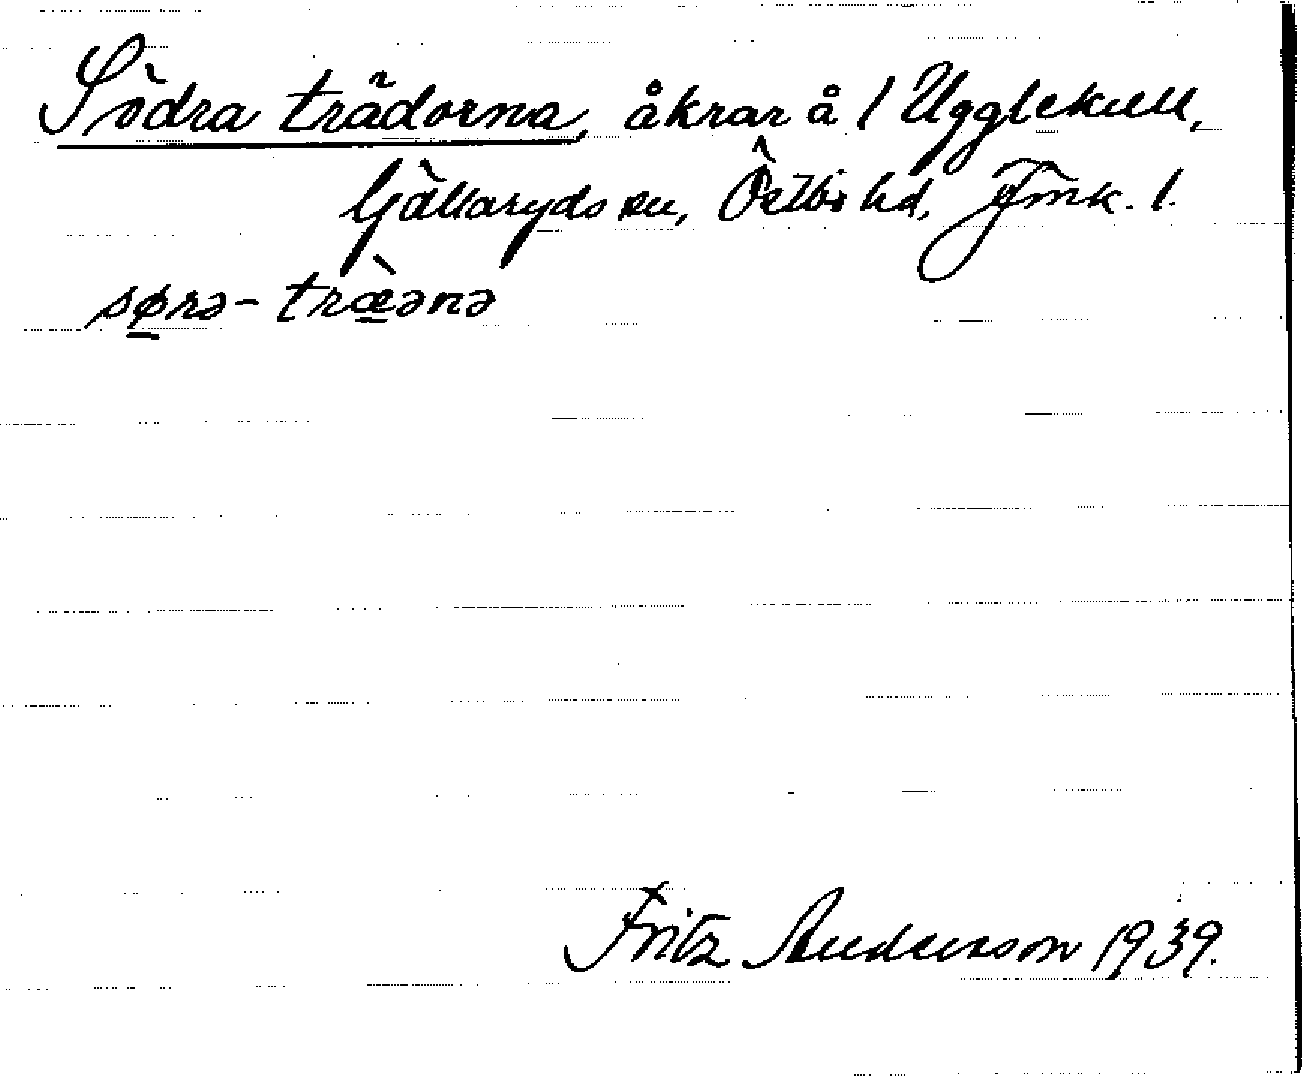 Södra trädorna, åkrar å 1 Ugglekull,
Gällaryds sn, Östbo hd, Jmk. l.
sørə- træ̀ənə
Fritz Anderson 1939.